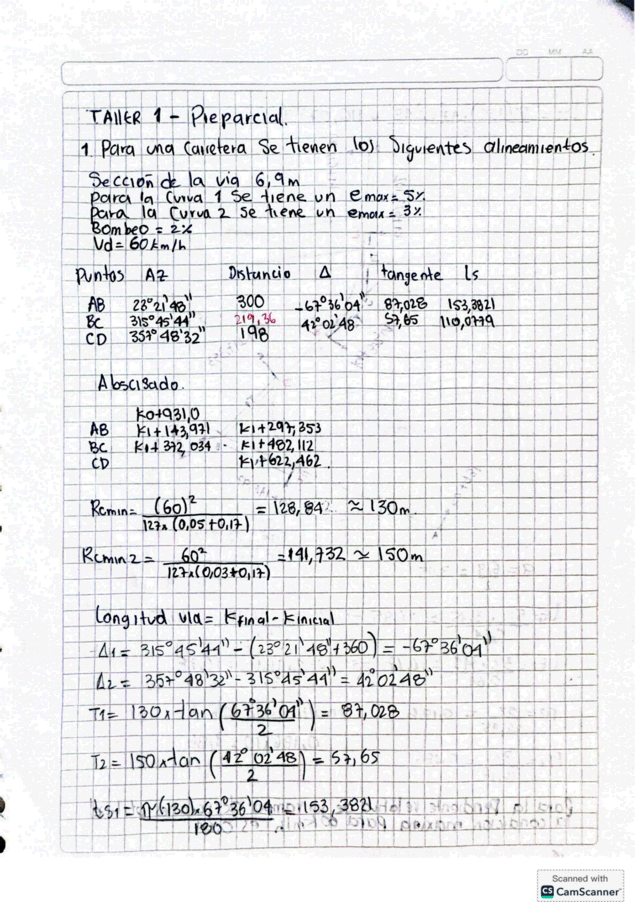 DD MM AA
TALLER 1 - Preparcial.
1 Para una carretera Se tienen los Siguientes alineamientos.
Sección de la via 6,9m
Para la Curva 1 Se tiene un emax= 5%
Para la Curva 2 se tiene un emax= 3%
Bombeo = 2%
Vd= 60km/h
Puntos AZ Distancia Δ tangente Ls
AB 23°21'48" 300 -67°36'04" 87,028 153,3821
BC 315°45'44" 219,36 42°02'48" 57,65 110,0779
CD 357°48'32" 198
Abscisado.
K0+931,0
AB K1+143,971 K1+297,353
BC K1+372,034 - K1+482,112
CD K1+622,462
Rcmin= (60)² / 127x(0,05+0,17) = 128,84 ≈ 130m.
Rcmin2 = 60² / 127x(0,03+0,17) = 141,732 ≈ 150m
Longitud via= Kfinal-Kinicial
Δ1= 315°45'44" - (23°21'48"+360) = -67°36'04"
Δ2= 357°48'32"-315°45'44"= 42°02'48"
T1= 130x tan (67°36'04" / 2) = 87,028
T2= 150xtan (42° 02'48 / 2) = 57,65
Ls1= π(130)x67°36'04 / 180 = 153,3821
Scanned with
CS CamScanner